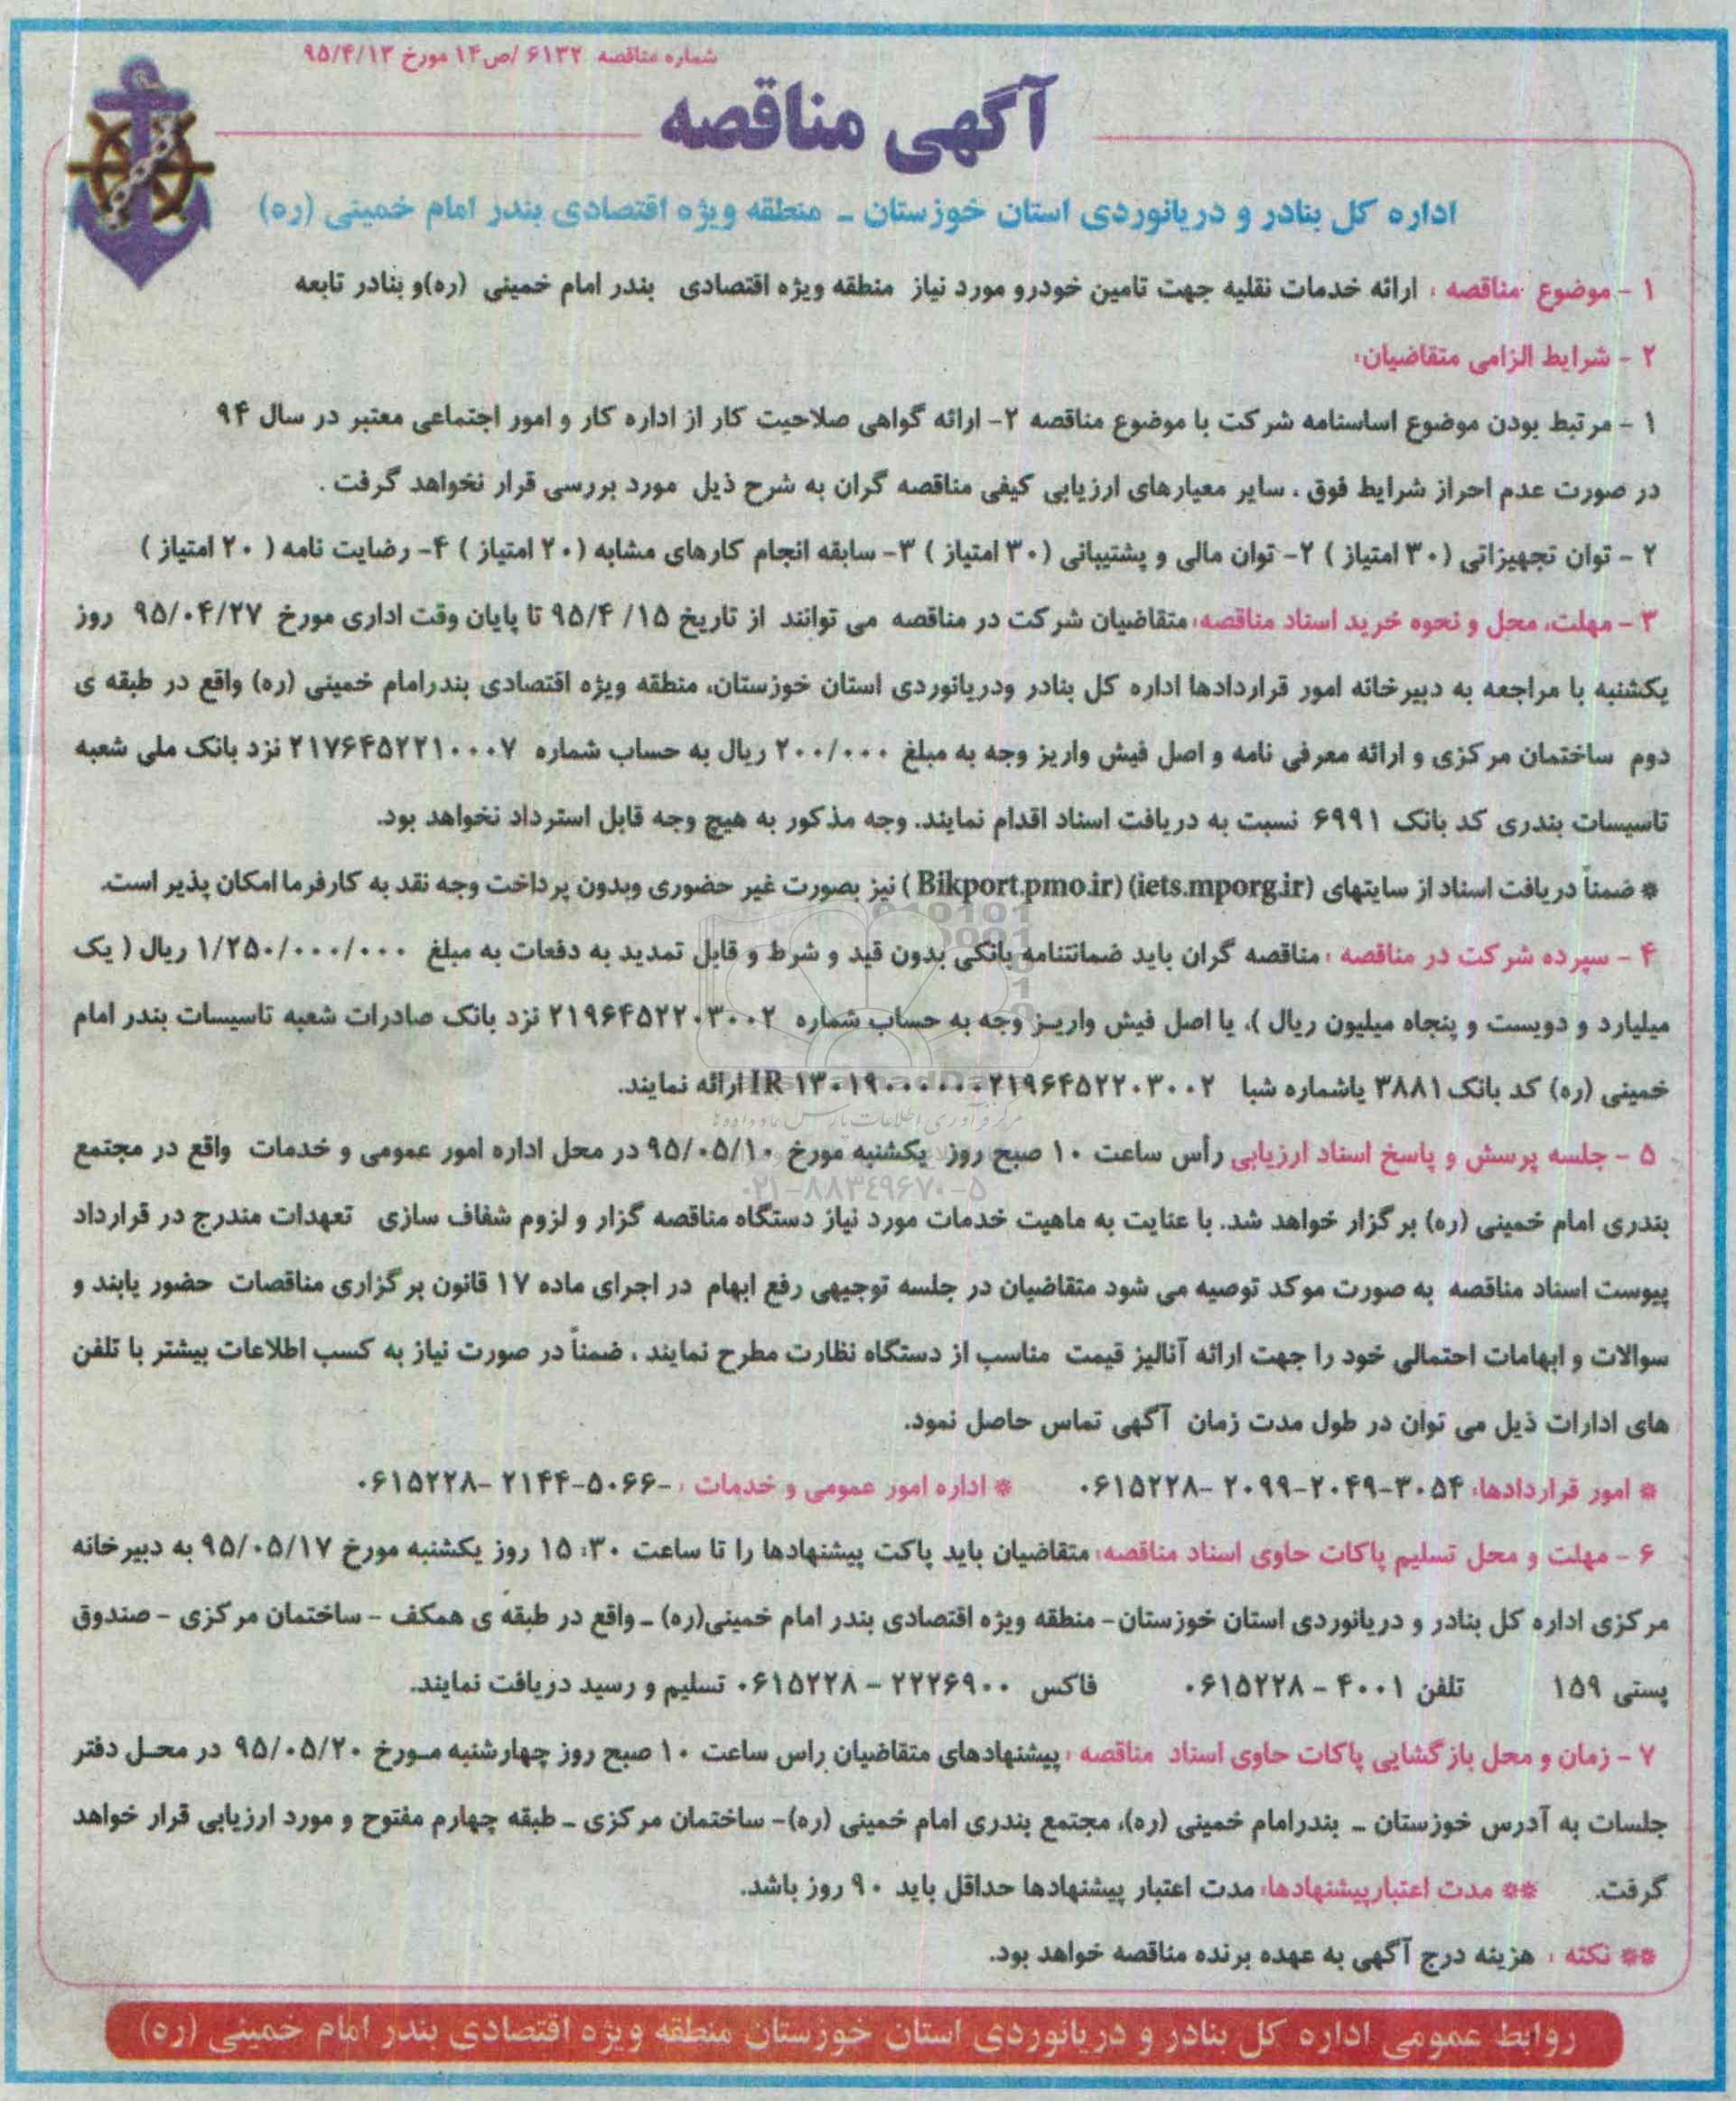 شماره مناقصه ۶۱۳۲ /ص۱۴ مورخ ۹۵/۴/۱۳
آگهی مناقصه
اداره کل بنادر و دریانوردی استان خوزستان ـ منطقه ویژه اقتصادی بندر امام خمینی (ره)
۱ - موضوع مناقصه : ارائه خدمات نقلیه جهت تامین خودرو مورد نیاز منطقه ویژه اقتصادی بندر امام خمینی (ره)و بنادر تابعه
۲ - شرایط الزامی متقاضیان:
۱ - مرتبط بودن موضوع اساسنامه شرکت با موضوع مناقصه ۲- ارائه گواهی صلاحیت کار از اداره کار و امور اجتماعی معتبر در سال ۹۴
در صورت عدم احراز شرایط فوق ، سایر معیارهای ارزیابی کیفی مناقصه گران به شرح ذیل مورد بررسی قرار نخواهد گرفت .
۲ - توان تجهیزاتی (۳۰ امتیاز ) ۲- توان مالی و پشتیبانی (۳۰ امتیاز ) ۳- سابقه انجام کارهای مشابه (۲۰ امتیاز ) ۴- رضایت نامه ( ۲۰ امتیاز )
۳ - مهلت، محل و نحوه خرید اسناد مناقصه: متقاضیان شرکت در مناقصه می توانند از تاریخ ۱۵/ ۹۵/۴ تا پایان وقت اداری مورخ ۹۵/۰۴/۲۷ روز
یکشنبه با مراجعه به دبیرخانه امور قراردادها اداره کل بنادر ودریانوردی استان خوزستان، منطقه ویژه اقتصادی بندرامام خمینی (ره) واقع در طبقه ی
دوم ساختمان مرکزی و ارائه معرفی نامه و اصل فیش واریز وجه به مبلغ ۲۰۰/۰۰۰ ریال به حساب شماره ۲۱۷۶۴۵۲۲۱۰۰۰۷ نزد بانک ملی شعبه
تاسیسات بندری کد بانک ۶۹۹۱ نسبت به دریافت اسناد اقدام نمایند. وجه مذکور به هیچ وجه قابل استرداد نخواهد بود.
* ضمناً دریافت اسناد از سایتهای (iets.mporg.ir) (Bikport.pmo.ir ) نیز بصورت غیر حضوری وبدون پرداخت وجه نقد به کارفرما امکان پذیر است.
۴ - سپرده شرکت در مناقصه : مناقصه گران باید ضمانتنامه بانکی بدون قید و شرط و قابل تمدید به دفعات به مبلغ ۱/۲۵۰/۰۰۰/۰۰۰ ریال ( یک
میلیارد و دویست و پنجاه میلیون ریال )، یا اصل فیش واریـز وجه به حساب شماره ۲۱۹۶۴۵۲۲۰۳۰۰۲ نزد بانک صادرات شعبه تاسیسات بندر امام
خمینی (ره) کد بانک ۳۸۸۱ یاشماره شبا IR ۱۳۰۱۹۰۰۰۰۰۰۰۲۱۹۶۴۵۲۲۰۳۰۰۲ ارائه نمایند.
مرکز فرآوری اطلاعات پارس نماد داده ها
۵ - جلسه پرسش و پاسخ اسناد ارزیابی رأس ساعت ۱۰ صبح روز یکشنبه مورخ ۹۵/۰۵/۱۰ در محل اداره امور عمومی و خدمات واقع در مجتمع
۰۲۱-۸۸۳۴۹۶۷۰-۵
بندری امام خمینی (ره) برگزار خواهد شد. با عنایت به ماهیت خدمات مورد نیاز دستگاه مناقصه گزار و لزوم شفاف سازی تعهدات مندرج در قرارداد
پیوست اسناد مناقصه به صورت موکد توصیه می شود متقاضیان در جلسه توجیهی رفع ابهام در اجرای ماده ۱۷ قانون برگزاری مناقصات حضور یابند و
سوالات و ابهامات احتمالی خود را جهت ارائه آنالیز قیمت مناسب از دستگاه نظارت مطرح نمایند ، ضمناً در صورت نیاز به کسب اطلاعات بیشتر با تلفن
های ادارات ذیل می توان در طول مدت زمان آگهی تماس حاصل نمود.
* امور قراردادها: ۳۰۵۴-۲۰۴۹-۲۰۹۹ -۰۶۱۵۲۲۸ * اداره امور عمومی و خدمات : -۵۰۶۶-۲۱۴۴ -۰۶۱۵۲۲۸
۶ - مهلت و محل تسلیم پاکات حاوی اسناد مناقصه: متقاضیان باید پاکت پیشنهادها را تا ساعت ۱۵:۳۰ روز یکشنبه مورخ ۹۵/۰۵/۱۷ به دبیرخانه
مرکزی اداره کل بنادر و دریانوردی استان خوزستان- منطقه ویژه اقتصادی بندر امام خمینی(ره) ـ واقع در طبقه ی همکف - ساختمان مرکزی - صندوق
پستی ۱۵۹ تلفن ۴۰۰۱ - ۰۶۱۵۲۲۸ فاکس ۲۲۲۶۹۰۰ - ۰۶۱۵۲۲۸ تسلیم و رسید دریافت نمایند.
۷ - زمان و محل بازگشایی پاکات حاوی اسناد مناقصه : پیشنهادهای متقاضیان راس ساعت ۱۰ صبح روز چهارشنبه مـورخ ۹۵/۰۵/۲۰ در محـل دفتر
جلسات به آدرس خوزستان ـ بندرامام خمینی (ره)، مجتمع بندری امام خمینی (ره)- ساختمان مرکزی ـ طبقه چهارم مفتوح و مورد ارزیابی قرار خواهد
گرفت. ** مدت اعتبارپیشنهادها: مدت اعتبار پیشنهادها حداقل باید ۹۰ روز باشد.
** نکته : هزینه درج آگهی به عهده برنده مناقصه خواهد بود.
روابط عمومی اداره کل بنادر و دریانوردی استان خوزستان منطقه ویژه اقتصادی بندر امام خمینی (ره)